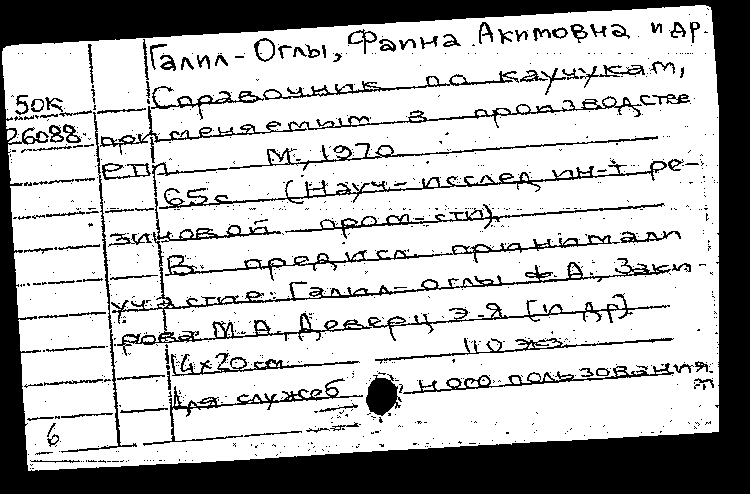 Галил-Оглы, Фаина Акимовна и др.
50к Справочник по каучукам,
26088 применяемым в производстве
М., 1970
65с (Науч-исслед ин-т ре-
зиновой пром-сти).
В предисл. принимали
участие: Галил-оглы Ф.А., Заки-
рова М.А., Доверц Э.Я. [и др]
14х20 см 110 экз
Для служеб ного пользования
6